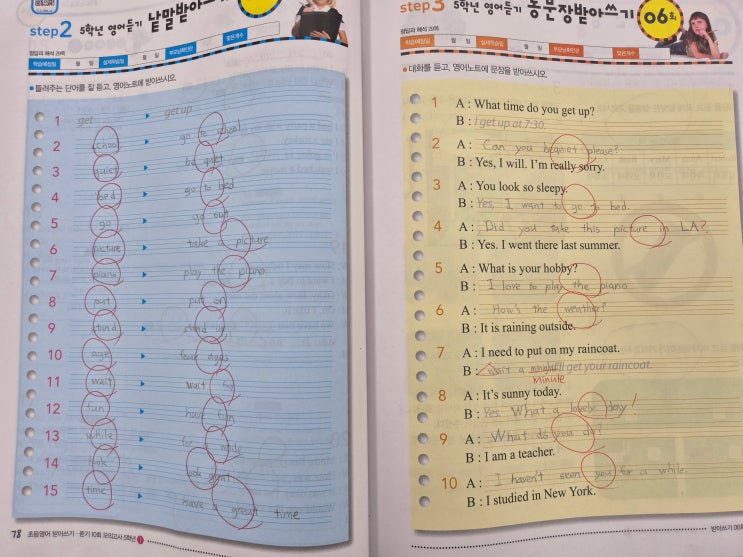 step2 5학년 영어듣기 낱말받아쓰기
정답과 해석 29쪽
학습예정일 월 일 실제학습일 월 일 부모님확인란 맞은개수
들려주는 단어를 잘 듣고, 영어노트에 받아쓰시오.
1 get get up
2 school go to school
3 quiet be quiet
4 bed go to bed
5 go go out
6 picture take a picture
7 piano play the piano
8 put put on
9 stand stand up
10 age four ages
11 wait wait for
12 fun have fun
13 while for while
14 look look great
15 time have a great time
78 초등영어 받아쓰기·듣기 10회 모의고사 5학년 1
step3 5학년 영어듣기 통문장받아쓰기 06회
정답과 해석 29쪽
학습예정일 월 일 실제학습일 월 일 부모님확인란 맞은개수
대화를 듣고, 영어노트에 문장을 받아쓰시오.
1 A : What time do you get up?
B : I get up at 7:30.
2 A : Can you be quiet please?
B : Yes, I will. I'm really sorry.
3 A : You look so sleepy.
B : Yes, I want to go to bed.
4 A : Did you take this picture in LA?
B : Yes. I went there last summer.
5 A : What is your hobby?
B : I love to play the piano
6 A : How's the weather?
B : It is raining outside.
7 A : I need to put on my raincoat.
B : Wait a I'll get your raincoat.
minute
8 A : It's sunny today.
B : Yes. What a lovely day!
9 A : What do you do?
B : I am a teacher.
10 A : I haven't seen you for a while.
B : I studied in New York.
받아쓰기 06회